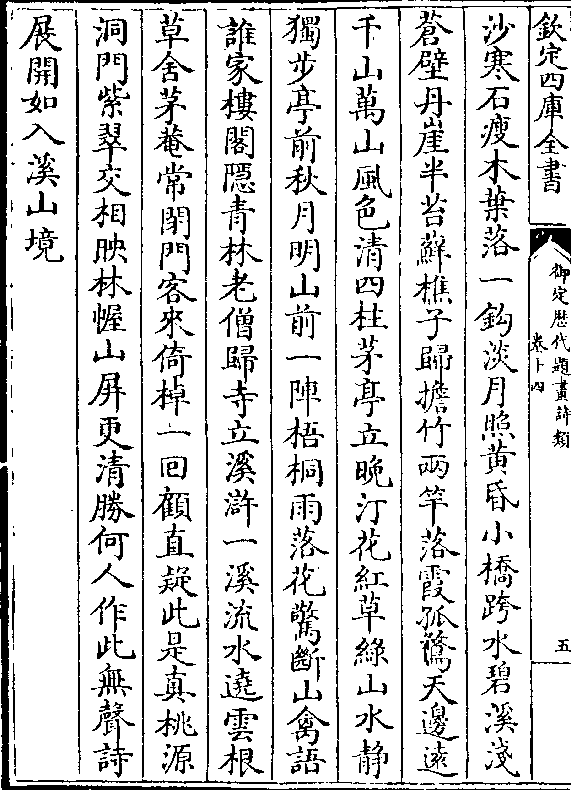 欽定四庫全書
御定歴代題畫詩類
卷十四
五
沙寒石瘦木葉落一鈎淡月照黄昏小橋跨水碧溪淺
蒼壁丹崖半苔蘚樵子歸擔竹兩竿落霞孤鶩天邊逺
千山萬山風色清四柱茅亭立晚汀花紅草綠山水静
獨步亭前秋月明山前一陣梧桐雨落花驚斷山禽語
誰家樓閣隠青林老僧歸寺立溪滸一溪流水遶雲根
草舍茅菴常閉門客來倚棹一回顧直疑此是真桃源
洞門紫翠交相映林幄山屏更清勝何人作此無聲詩
展開如入溪山境